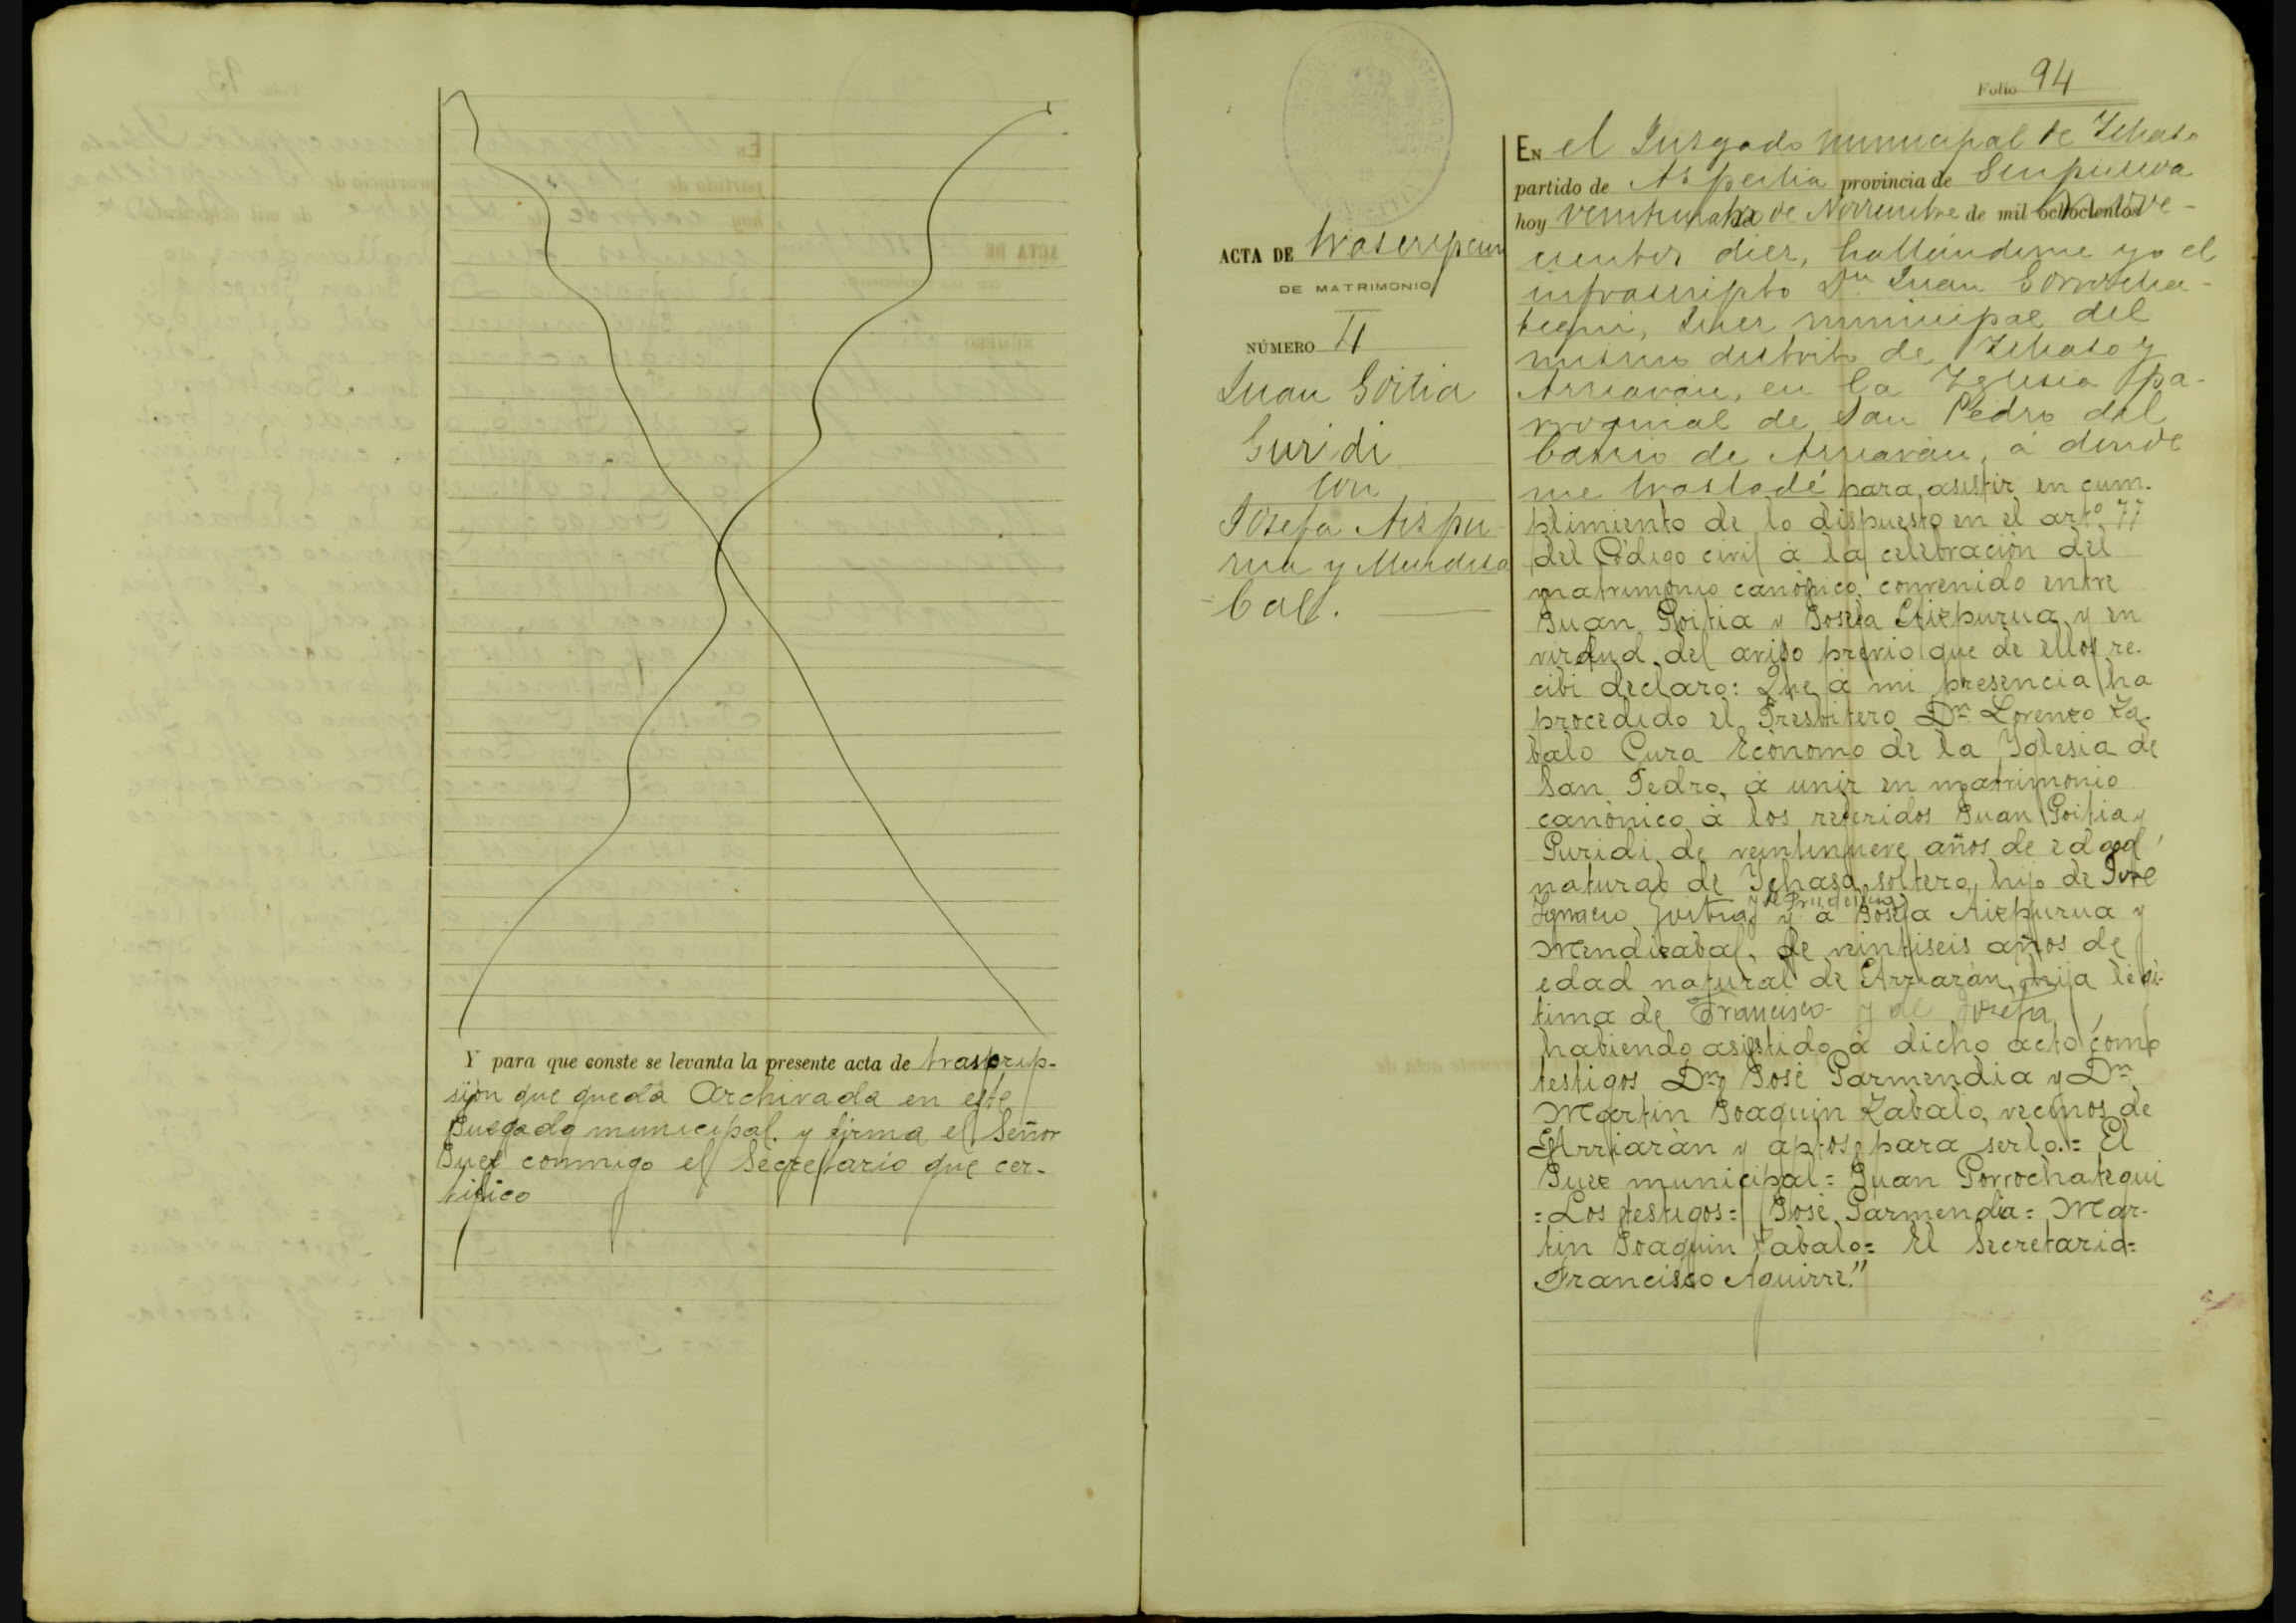 Y para que conste se levanta la presente acta de trascrip-
sión que queda Archivada en este
Juzgado municipal. y firma el Señor
Juez conmigo el Secretario que cer-
tifico
Folio 94
ACTA DE trascripcion
DE MATRIMONIO
NÚMERO 11
Juan Goitia
Guridi
con
Josefa Aizpu-
rua y Mendiza
bal.
EN el Juzgado municipal de Ichaso
partido de Azpeitia provincia de Guipuzcoa
hoy de Noviembre de mil ochocientos nove-
cientos diez, hallándome yo el
infrascripto Dn Juan Gorrocha-
tegui, Juez municipal del
mismo distrito de Ichaso y
Arriarán, en la Iglesia pa-
rroquial de San Pedro del
barrio de Arriarán, á donde
me trasladé para asistir en cum-
plimiento de lo dispuesto en el arto. 77
del Código civil á la celebración del
matrimonio canónico convenido entre
Juan Goitia y Josefa Aizpurua y en
virtud del aviso previo que de ellos re-
cibi declaro: Que á mi presencia ha
procedido el Presbitero Dn. Lorenzo Za-
balo Cura Ecónomo de la Iglesia de
San Pedro, á unir en matrimonio
canónico á los referidos Juan Goitia y
Guridi de veintinueve años de edad,
natural de Ichaso, soltero, hijo de José
Ignacio Goitia y de Prudencia y á Josefa Aizpurua y
Mendizabal, de veintiseis años de
edad natural de Arriarán, hija legi-
tima de Francisco y de Josefa,
habiendo asistido á dicho acto como
testigos Dn José Garmendia y Dn
Martin Joaquin Zabalo, vecinos de
Arriarán y aptos para serlo.= El
Juez municipal = Juan Gorrochategui
= Los testigos = José Garmendia = Mar-
tin Joaquin Zabalo = El Secretario =
Francisco Aguirre."